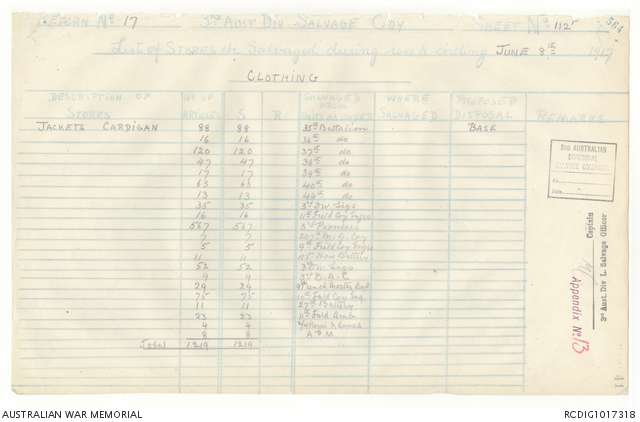 RETURN No 17 3rd Aust Div SALVAGE COY SHEET No 112
List of STORES &c Salvaged during week ending JUNE 8th 1917
CLOTHING
DESCRIPTION OF STORES No OF ARTICLES S R SALVAGED FROM WHERE SALVAGED PROPOSED DISPOSAL REMARKS
JACKETS CARDIGAN 88 88 35th Battalion BASE
16 16 36th do
120 120 37th do
47 47 38th do
17 17 39th do
63 63 40th do
13 13 do
35 35 3rd Div Sigs
16 16 11th Field Coy Engrs
567 567 3rd Pioneers
7 7 M. G. Coy
5 5 9th Field Coy Engrs
11 11 Battery
52 52 3rd Div
9 9 D. A. C
29 29 9th
75 75 11th Field Coy Eng
11 11 27th Battery
23 23 11th Field Amb
4 4
8 8
TOTAL 1219 1219
3RD AUSTRALIAN
DIVISIONAL
SALVAGE COMPANY
No.
Date
Captain
3rd Aust. Div L. Salvage Officer
Appendix No. 13
41
AUSTRALIAN WAR MEMORIAL RCDIG1017318